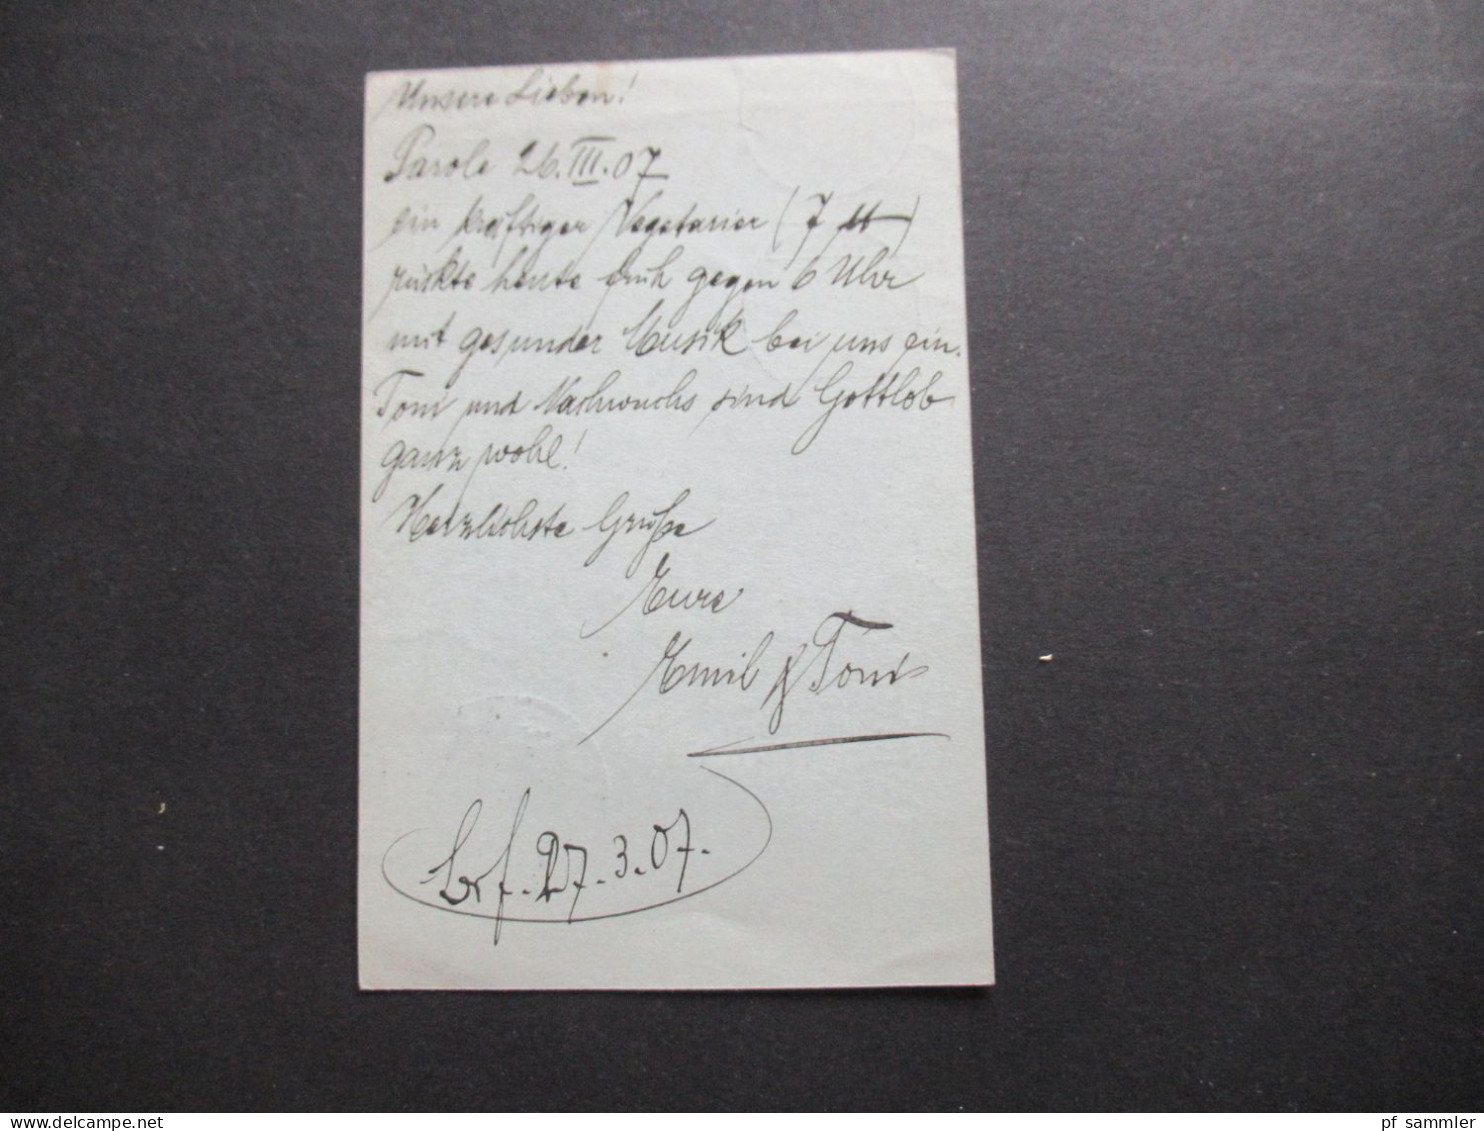 Unsere Lieben!
Parole 26. III. 07
ein kräftiger Vegetarier (7 ℔)
rückte heute früh gegen 6 Uhr
mit gesunder Musik bei uns ein.
Toni und Nachwuchs sind Gottlob
ganz wohl!
Herzlichste Grüße
Eure
Emil & Toni
27.3.07.
pf sammler
www.delcampe.net